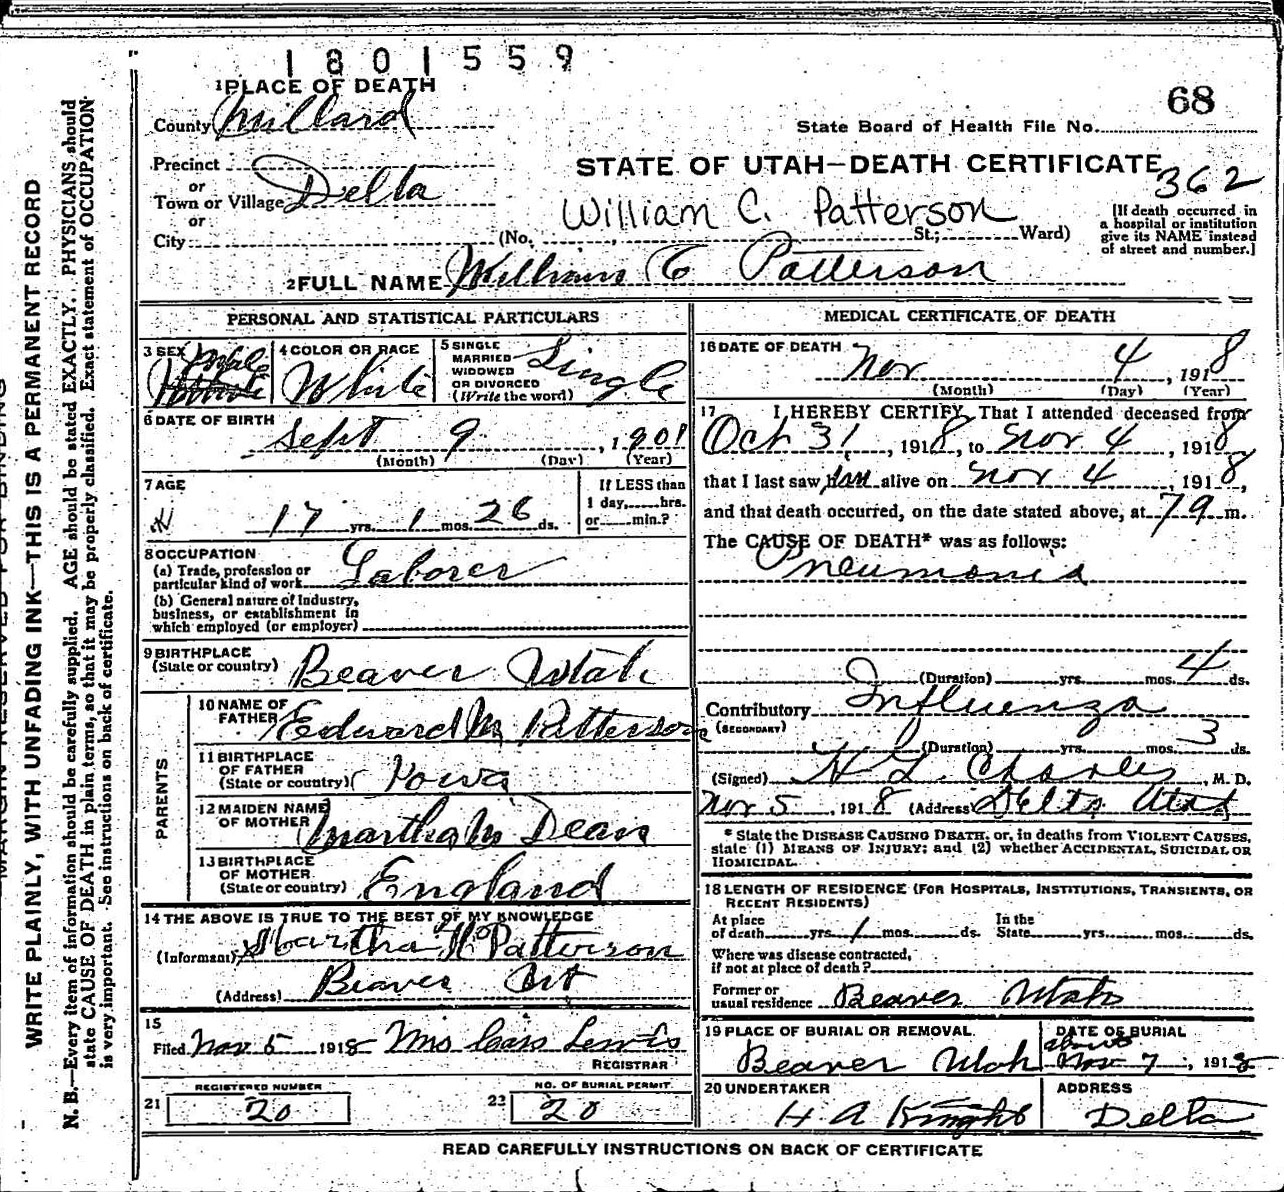 1801559
1 PLACE OF DEATH
68
County Millard
State Board of Health File No.
Precinct
STATE OF UTAH—DEATH CERTIFICATE
362
or
Town or Village Delta
William C. Patterson
or
City (No. St.; Ward)
[If death occurred in
a hospital or institution
give its NAME instead
of street and number.]
2 FULL NAME William C Patterson
PERSONAL AND STATISTICAL PARTICULARS
3 SEX Male
4 COLOR OR RACE White
5 SINGLE
MARRIED
WIDOWED
OR DIVORCED
(Write the word)
Single
6 DATE OF BIRTH
Sept 9, 1901
(Month) (Day) (Year)
7 AGE
17 yrs. 1 mos. 26 ds.
If LESS than
1 day, hrs.
or min.?
8 OCCUPATION
(a) Trade, profession or
particular kind of work Laborer
(b) General nature of Industry,
business, or establishment in
which employed (or employer)
9 BIRTHPLACE
(State or country) Beaver Utah
PARENTS
10 NAME OF
FATHER Edward M Patterson
11 BIRTHPLACE
OF FATHER
(State or country) Iowa
12 MAIDEN NAME
OF MOTHER Martha M Dean
13 BIRTHPLACE
OF MOTHER
(State or country) England
14 THE ABOVE IS TRUE TO THE BEST OF MY KNOWLEDGE
(Informant) Martha Patterson
(Address) Beaver Ut
15
Filed Nov 5 1918 Mrs Lewis
REGISTRAR
REGISTERED NUMBER
21 20
NO. OF BURIAL PERMIT
22 20
MEDICAL CERTIFICATE OF DEATH
16 DATE OF DEATH
Nov 4, 1918
(Month) (Day) (Year)
17 I HEREBY CERTIFY, That I attended deceased from
Oct 31, 1918, to Nov 4, 1918
that I last saw him alive on Nov 4, 1918,
and that death occurred, on the date stated above, at 79 m.
The CAUSE OF DEATH* was as follows:
Pneumonia
(Duration) yrs. mos. 4 ds.
Contributory Influenza
(SECONDARY)
(Duration) yrs. mos. 3 ds.
(Signed) H L Charles, M. D.
Nov 5, 1918 (Address) Delta Utah
* State the DISEASE CAUSING DEATH, or, in deaths from VIOLENT CAUSES,
state (1) MEANS OF INJURY; and (2) whether ACCIDENTAL, SUICIDAL OR
HOMICIDAL.
18 LENGTH OF RESIDENCE (FOR HOSPITALS, INSTITUTIONS, TRANSIENTS, OR
RECENT RESIDENTS)
At place
of death yrs. 1 mos. ds.
In the
State yrs. mos. ds.
Where was disease contracted,
if not at place of death?
Former or
usual residence Beaver Utah
19 PLACE OF BURIAL OR REMOVAL
Beaver Utah
DATE OF BURIAL
about
Nov 7, 1918
20 UNDERTAKER
H A Knight
ADDRESS
Delta
READ CAREFULLY INSTRUCTIONS ON BACK OF CERTIFICATE
MARGIN RESERVED FOR BINDING
WRITE PLAINLY, WITH UNFADING INK—THIS IS A PERMANENT RECORD
N. B.—Every item of information should be carefully supplied. AGE should be stated EXACTLY. PHYSICIANS should
state CAUSE OF DEATH in plain terms, so that it may be properly classified. Exact statement of OCCUPATION
is very important. See instructions on back of certificate.